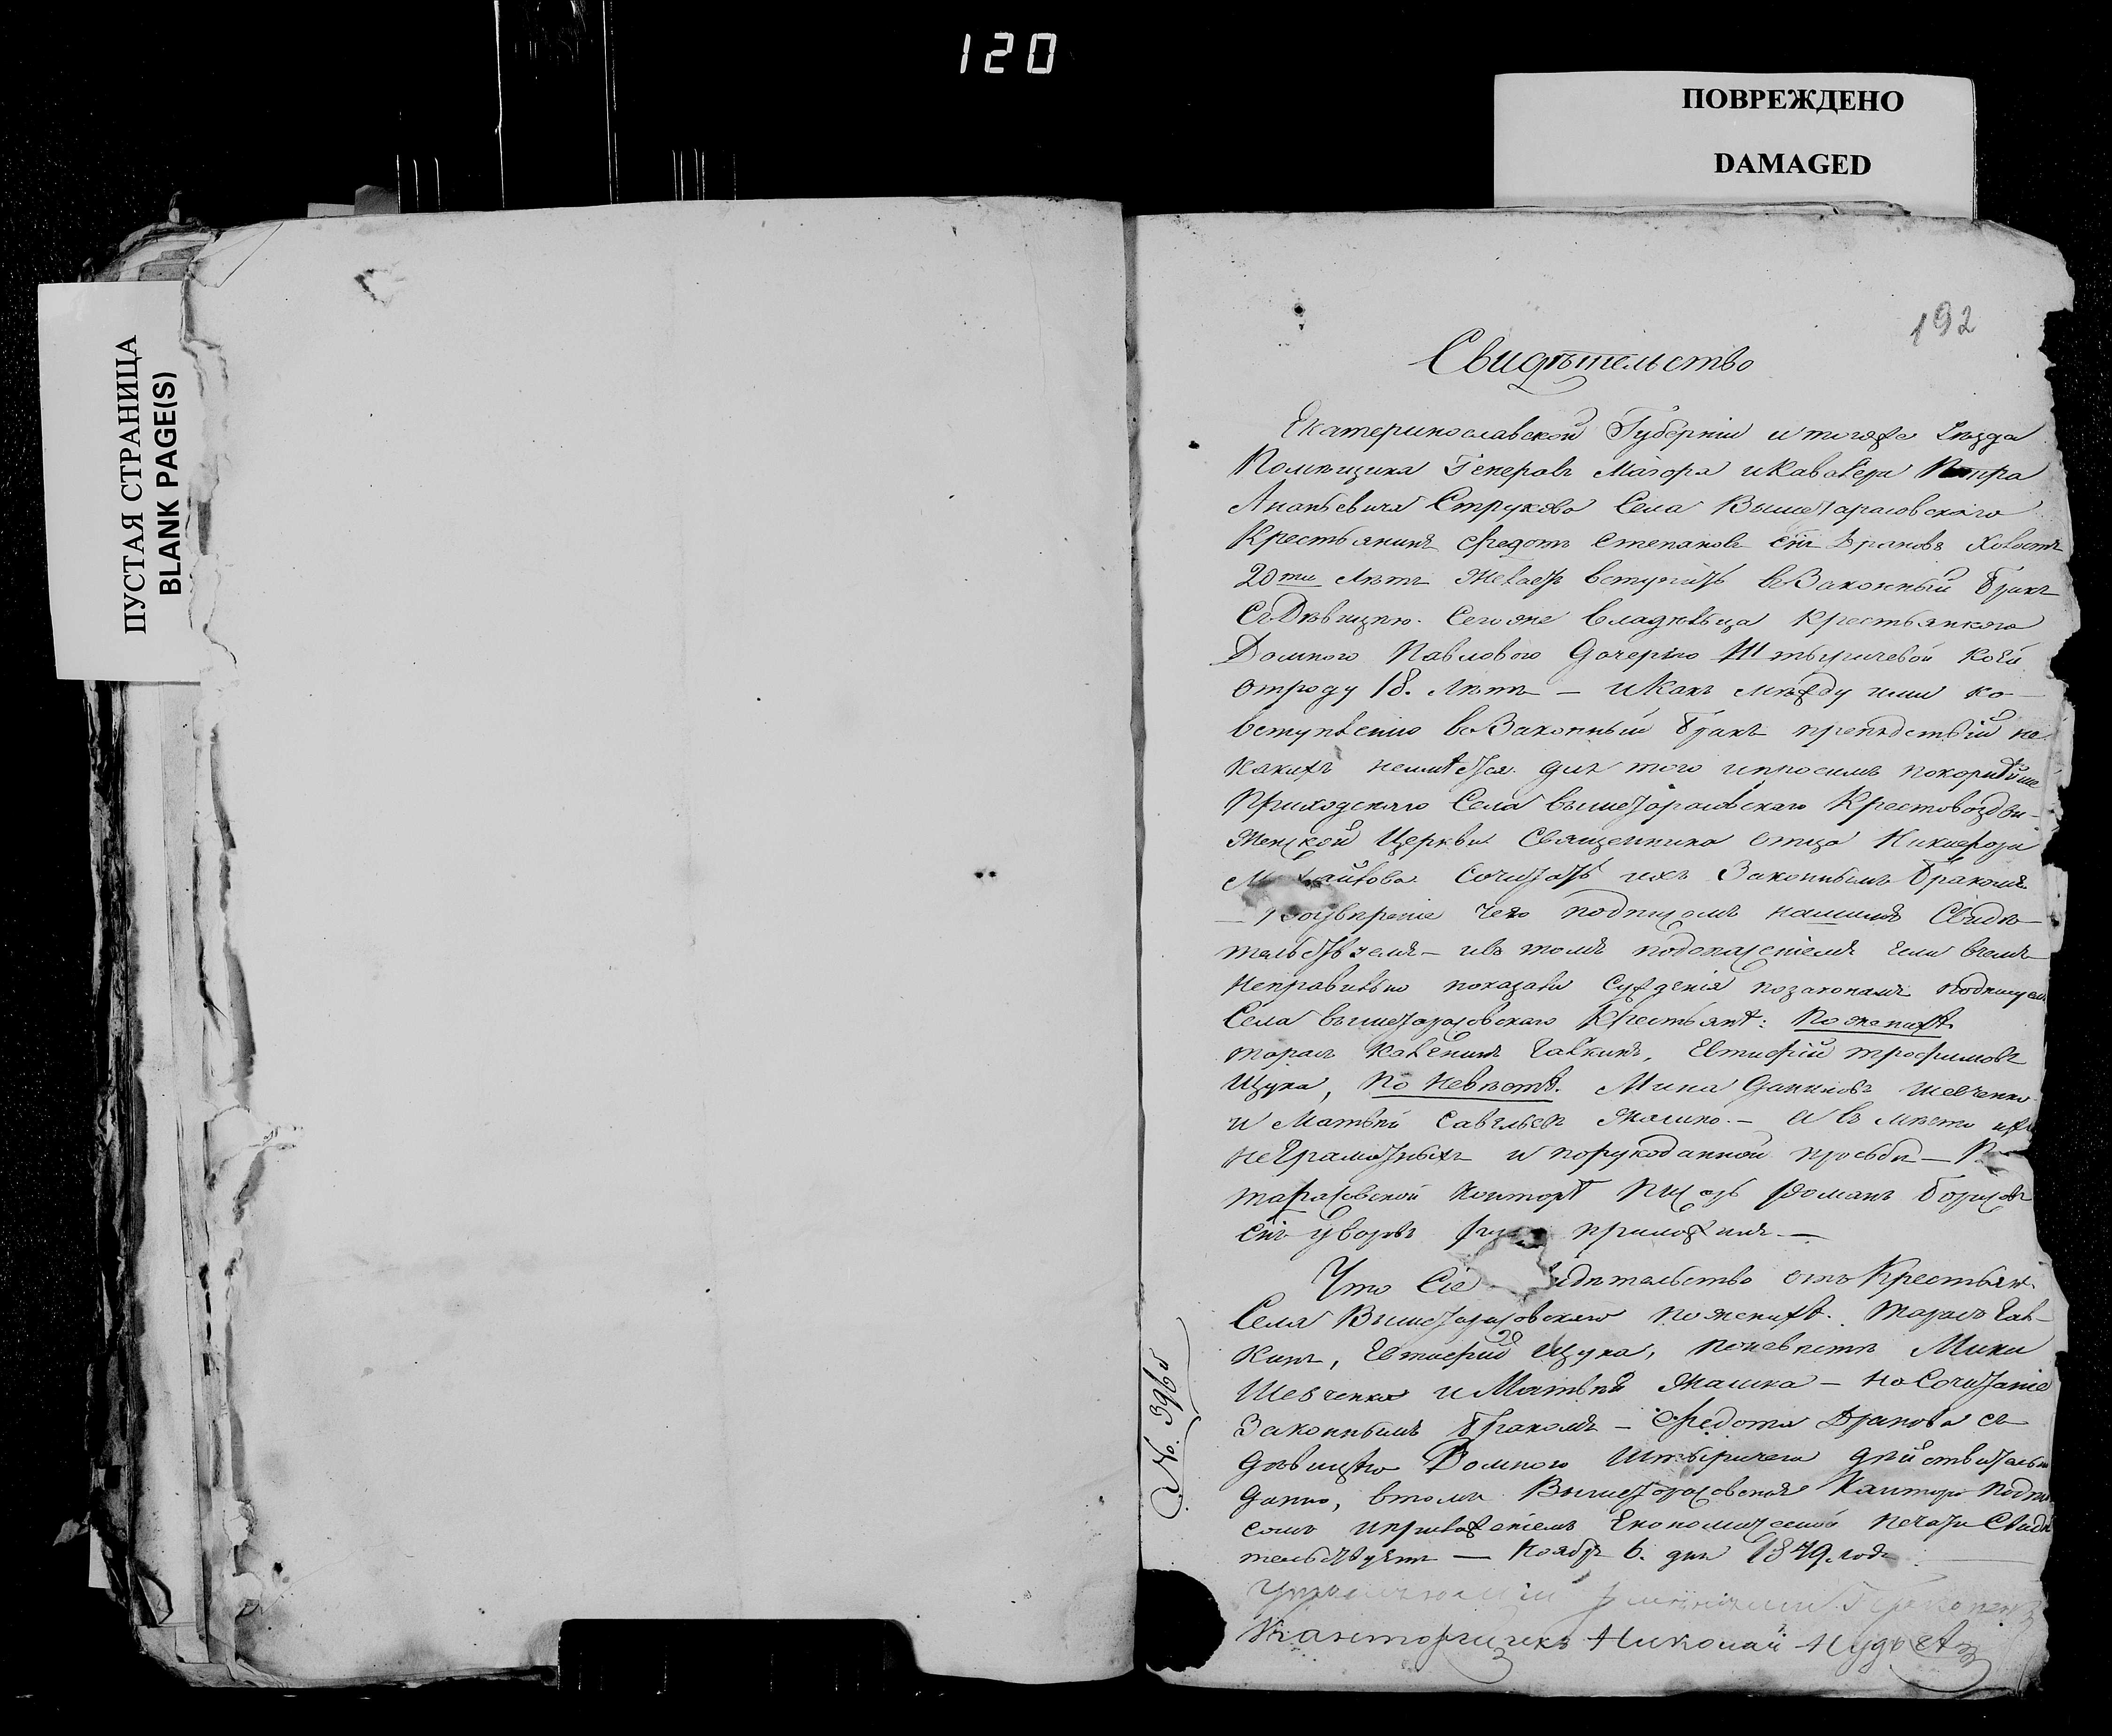 120
ПОВРЕЖДЕНО
DAMAGED
ПУСТАЯ СТРАНИЦА
BLANK PAGE(S)
192
Свидѣтельство
Екатеринославской Губерніи и тогоже Уѣзда
Помѣщика Генералъ Маіора и Кавалера Петра
Ананьевича Струкова Села Вышетарасовскаго
Крестьянинъ Федотъ Степановъ снъ Драновъ Холостъ
20ти Лѣтъ Желаетъ вступить въ Законный бракъ
Съ Дѣвицею. Сегоже владѣльца Крестьянкою
Домною Павловою дочерью Штыричевой коей
отроду 18. Лѣтъ — и Какъ между ими ко
вступленію въ Законный бракъ препядствій не
какихъ неимѣется. для того и просимъ покорнѣйше
Приходскаго Села вышетарасовскаго Крестовоздви-
женской Церкви Священника отца Никифора
Сочитать ихъ Законнымъ бракомъ.
чего подписомъ нашимъ Свидѣ-
тельствуемъ — ивъ томъ подопасеніемъ ели вчемъ
неправильно показали Сужденія позаконамъ подписуемъ
Села вышетарасовскаго Крестьянѣ: По женихѣ
тарасъ Галкинъ, Евтифій трофимовъ
Щука, По невѣстѣ. Мина Даниловъ Шевченко
и Матвѣй Савельевъ Жалико. — А въ мѣсто ихъ
неграмотныхъ и порукоданной прозбѣ —
тарасовской конторѣ Писарь Романъ Борисовъ
снъ приложилъ —
Что Сіе Свидѣтельство отъ Крестьянъ
Села Вышетарасовскаго по женихѣ. Тарасъ Гал-
кинъ, Евтифій Щука, поневѣстѣ Мина
Шевченко и Матвѣй — на Сочитаніе
Законнымъ бракомъ — Федота Дранова съ
дѣвицею Домною Штыричева дѣйствительно
данно, втомъ Вышетарасовская Кантора подпи-
сомъ и приложеніемъ Економической печати Свидѣ
тельствуетъ — Ноября 6. дня 1849. года
No. 396й
Управляющій
Канторщикъ Николай